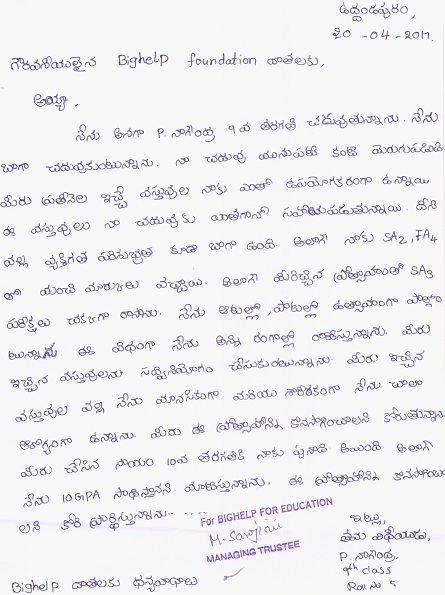 ఉద్దండపురం,
20 -04 -2017.
గౌరవనీయులైన Bighelp foundation దాతలకు,
అయ్యా.
నేను అనగా P. నాగేంద్ర 9వ తరగతి చదువుతున్నాను. నేను
బాగా చదువుకుంటున్నాను. నా చదువు మునుపటి కంటె మెరుగుపడినది
మీరు ప్రతినెల ఇచ్చే వస్తువుల నాకు ఎంతో ఉపయోగకరంగా ఉన్నాయి
ఈ వస్తువులు నా చదువుకు ఎంతగానో సహాయపడుతున్నాయి. దీని
వల్ల వ్యక్తిగత పరిశుభ్రత కూడా బాగా ఉంది. అలాగే నాకు SA2, FA4
లో మంచి మార్కులు వచ్చాయి. అలాగే మీరిచ్చిన ప్రోత్సాహంతో SA3
పరీక్షలు చక్కగా రాసాను. నేను ఆటల్లో, పాటల్లో ఉత్సాహంగా పాల్గొం
టున్నాను. ఈ విధంగా నేను అన్ని రంగాల్లో రాణిస్తున్నాను. మీరు
ఇచ్చిన వస్తువులను సద్వినియోగం చేసుకుంటున్నాను. మీరు ఇచ్చిన
వస్తువుల వల్ల నేను మానసికంగా మరియు శారీరకంగా నేను చాలా
ఆరోగ్యంగా ఉన్నాను. మీరు ఈ ప్రోత్సాహాన్ని కొనసాగించాలని కోరుతున్నాను
మీరు చేసిన సాయం 10వ తరగతికి నాకు పునాది అయింది. అలాగే
నేను 10GPA సాధిస్తానని మాటిస్తున్నాను. ఈ ప్రోత్సాహాన్ని కొనసాగించా
లని కోరి ప్రార్థిస్తున్నాను.....
For BIGHELP FOR EDUCATION
M. Sanjiai
MANAGING TRUSTEE
ఇట్లు,
తమ విధేయుడు,
P. నాగేంద్ర.
9th class
Roll No 5
Bighelp దాతలకు ధన్యవాదాలు